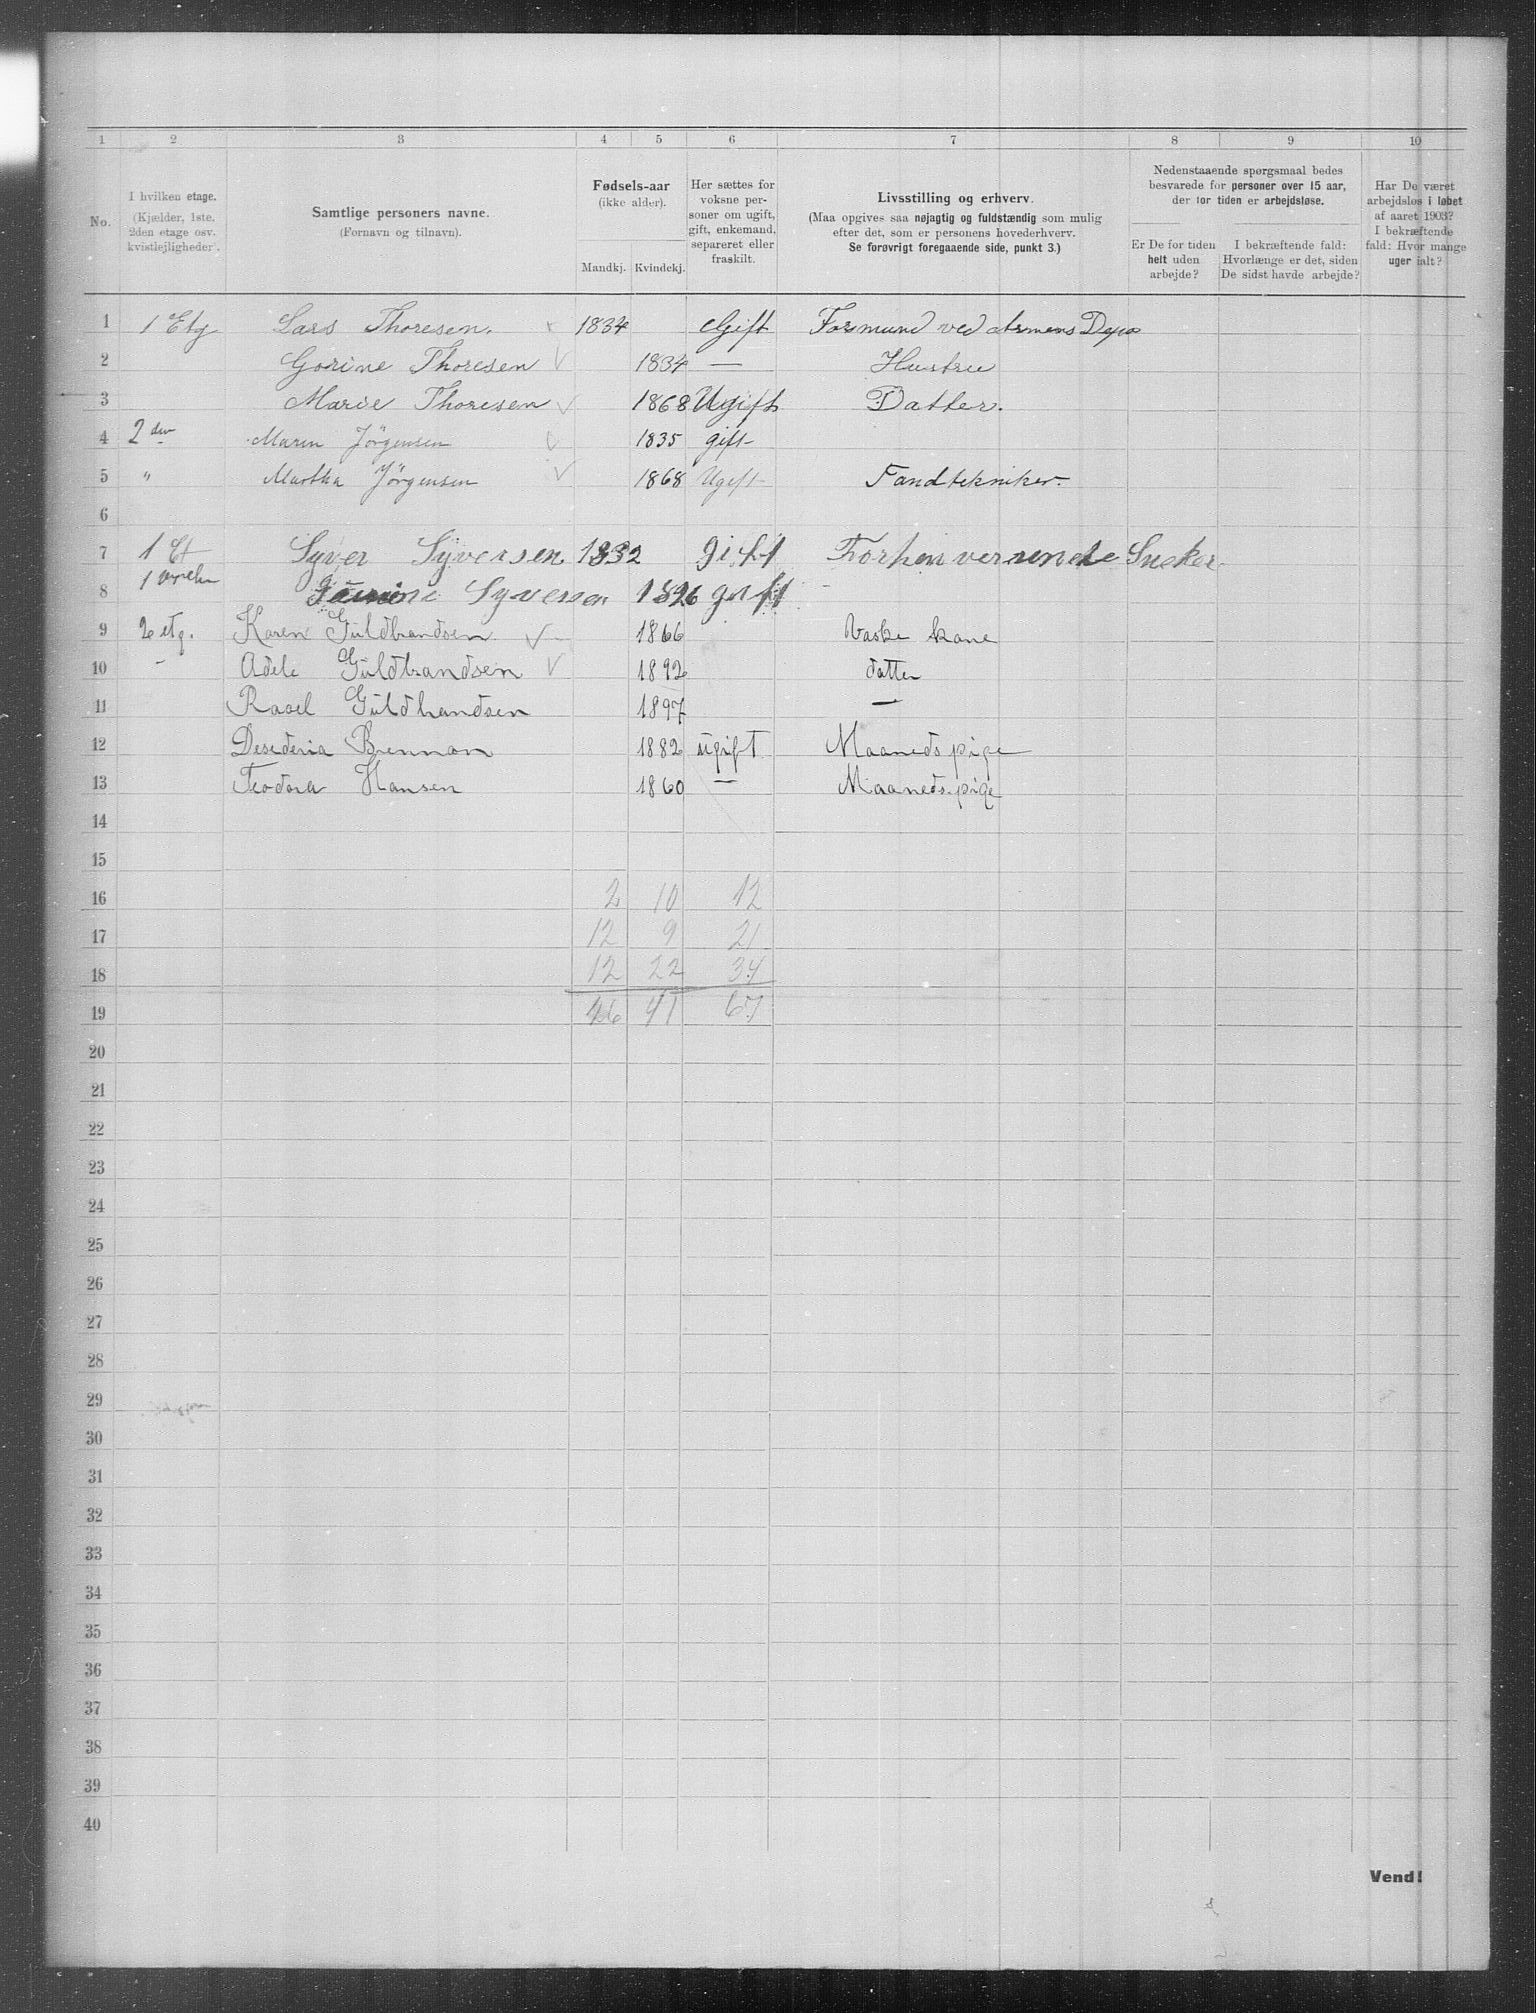 1 2 3 4 5 6 7 8 9 10
No.
I hvilken etage. (Kjælder, 1ste, 2den etage osv. kvistlejligheder).
Samtlige personers navne. (Fornavn og tilnavn).
Fødsels-aar (ikke alder). Mandkj. Kvindekj.
Her sættes for voksne personer om ugift, gift, enkemand, separeret eller fraskilt.
Livsstilling og erhverv.
(Maa opgives saa nøjagtig og fuldstændig som mulig efter det, som er personens hovederhverv.
Se forøvrigt foregaaende side, punkt 3.)
Nedenstaaende spørgsmaal bedes besvarede for personer over 15 aar, der for tiden er arbejdsløse.
Er De for tiden helt uden arbejde?
I bekræftende fald: Hvorlænge er det, siden De sidst havde arbejde?
Har De været arbejdsløs i løbet af aaret 1903? I bekræftende fald: Hvor mange uger ialt?
1 1 Etg Lars Thoresen. 1834 Gift Formund ved Depo
2 Gorine Thoresen 1834 — Hustru
3 Marie Thoresen 1868 Ugift Datter.
4 2den Maren Jörgensen 1835 gift
5 " Martha Jörgensen 1868 Ugift Tandtekniker.
6
7 1 Et Syver Syversen 1832 gift Forhenverende Sneker
8 Syversen 1826 gift
9 2 etg. Karen Guldbrandsen 1866 Vaske kone
10 - Adele Guldbrandsen 1892 datter
11 Guldbrandsen 1897 —
12 Desederia Brennmon 1882 ugift Maaneds pige
13 Teodora Hansen 1860 — Maaneds pige
14
15
16 2 10 12
17 12 9 21
18 12 22 34
19 26 41 67
20
21
22
23
24
25
26
27
28
29
30
31
32
33
34
35
36
37
38
39
40
Vend!